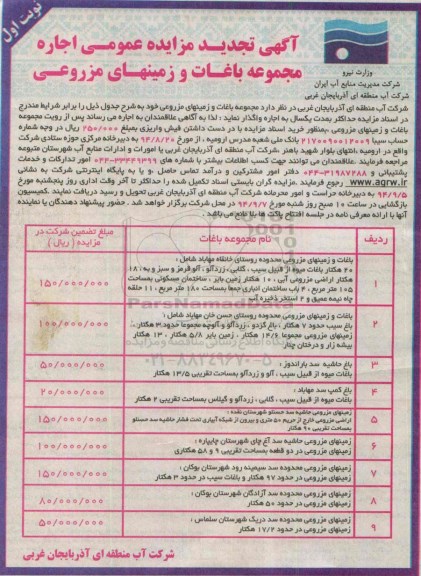 نوبت اول
آگهی تجدید مزایده عمومی اجاره
مجموعه باغات و زمینهای مزروعی
وزارت نیرو
شرکت مدیریت منابع آب ایران
شرکت آب منطقه ای آذربایجان غربی
شرکت آب منطقه ای آذربایجان غربی در نظر دارد مجموعه باغات و زمینهای مزروعی خود به شرح جدول ذیل را برابر شرایط مندرج
در اسناد مزایده حداکثر بمدت یکسال به اجاره واگذار نماید؛ لذا به آگاهی علاقمندان به اجاره می رساند پس از رویت مجموعه
باغات و زمینهای مزروعی ،بمنظور خرید اسناد مزایده با در دست داشتن فیش واریزی بمبلغ ۲۵۰/۰۰۰ ریال در وجه شماره
حساب سیبا ۲۱۷۰۰۹۰۰۱۲۰۰۹ بانک ملی شعبه مدرس ارومیه ، از مورخ ۹۴/۸/۲۰ به دبیرخانه مرکزی حوزه ستادی شرکت
واقع در ارومیه ،انتهای بلوار شهید باهنر ،شرکت آب منطقه ای آذربایجان غربی یا امورات و ادارات منابع آب شهرستان متبوعه
مراجعه فرمایند .علاقمندان می توانند جهت کسب اطلاعات بیشتر با شماره های ۲۳۴۴۹۳۹۹-۰۴۴ امور تدارکات و خدمات
پشتیبانی و ۳۱۹۸۷۲۸۸-۰۴۴ دفتر امور مشترکین و درآمد تماس حاصل ،و یا به پایگاه اینترنتی شرکت به نشانی
www.agrw.ir رجوع فرمایند .مزایده گران بایستی اسناد تکمیل شده را حداکثر تا آخر وقت اداری روز پنجشنبه مورخ
۹۴/۹/۵ به دبیرخانه حراست و امور محرمانه شرکت آب منطقه ای آذربایجان غربی تحویل و رسید دریافت نمایند .کمیسیون
بازگشایی در ساعت ۱۰ صبح روز شنبه مورخ ۹۴/۹/۷ در محل شرکت برگزار خواهد شد. حضور پیشنهاد دهندگان یا نماینده
آنها با ارائه معرفی نامه در جلسه افتتاح پاکت ها بلا مانع می باشد .
ردیف
نام مجموعه باغات
مبلغ تضمین شرکت در
مزایده ( ریال )
۱
باغات و زمینهای مزروعی محدوده روستای خانقاه مهاباد شامل :
۲۰ هکتار باغات میوه از قبیل سیب ، گلابی ، زردآلو ، آلو قرمز و سبز و به ، ۱۸
هکتار اراضی مزروعی آبی ، ۱۰ هکتار زمین بایر ، ساختمان مسکونی بمساحت
۱۰۵ متر مربع ، ۴ باب ساختمان انباری جمعاً بمساحت ۱۸۰ متر مربع ، ۱۱ حلقه
چاه نیمه عمیق و ۲ استخر ذخیره آب
۱۵۰/۰۰۰/۰۰۰
ParsNamadData
۲
باغات و زمینهای مزروعی محدوده روستای حسن خان مهاباد شامل :
باغ سیب حدود ۷ هکتار ، باغ گردو ، زردآلو و آلوچه مجموعا حدود ۳ هکتار ،
زمینهای مزروعی مجموعا ۱۴/۲ هکتار ، زمین بایر ۵/۸ هکتار ، ۱۳ هکتار
بیشه زار و درختان چنار
۱۰۰/۰۰۰/۰۰۰
۰۲۱-۸۸۳۴۹۶۷۰-۵
۳
باغ حاشیه سد باراندوز :
باغات میوه از قبیل سیب ، آلو و زردآلو بمساحت تقریبی ۱۳/۵ هکتار
۵۰/۰۰۰/۰۰۰
۴
باغ کمپ سد مهاباد :
باغات میوه از قبیل سیب ، گلابی ، زردآلو و گیلاس بمساحت تقریبی ۲ هکتار
۲۰/۰۰۰/۰۰۰
۵
زمینهای مزروعی حاشیه سد حسنلو شهرستان نقده :
اراضی مزروعی خارج از حریم ۵۰ متری و بیرون از شبکه آبیاری تحت فشار حاشیه سد حسنلو
بمساحت تقریبی ۹۰ هکتار
۱۵۰/۰۰۰/۰۰۰
۶
زمینهای مزروعی حاشیه سد آغ چای شهرستان چایپاره :
زمینهای مزروعی در دو قطعه بمساحت تقریبی ۹ و ۵۸ هکتاری
۱۰۰/۰۰۰/۰۰۰
۷
زمینهای مزروعی محدوده سد سیمینه رود شهرستان بوکان :
زمینهای مزروعی در حدود ۹۷ هکتار و باغات سیب در حدود ۳ هکتار
۱۵۰/۰۰۰/۰۰۰
۸
زمینهای مزروعی محدوده سد آزادگان شهرستان بوکان :
زمینهای مزروعی در حدود ۵۰ هکتار
۸۰/۰۰۰/۰۰۰
۹
زمینهای مزروعی محدوده سد دریک شهرستان سلماس :
زمینهای مزروعی در حدود ۱۷/۲ هکتار
۵۰/۰۰۰/۰۰۰
شرکت آب منطقه ای آذربایجان غربی